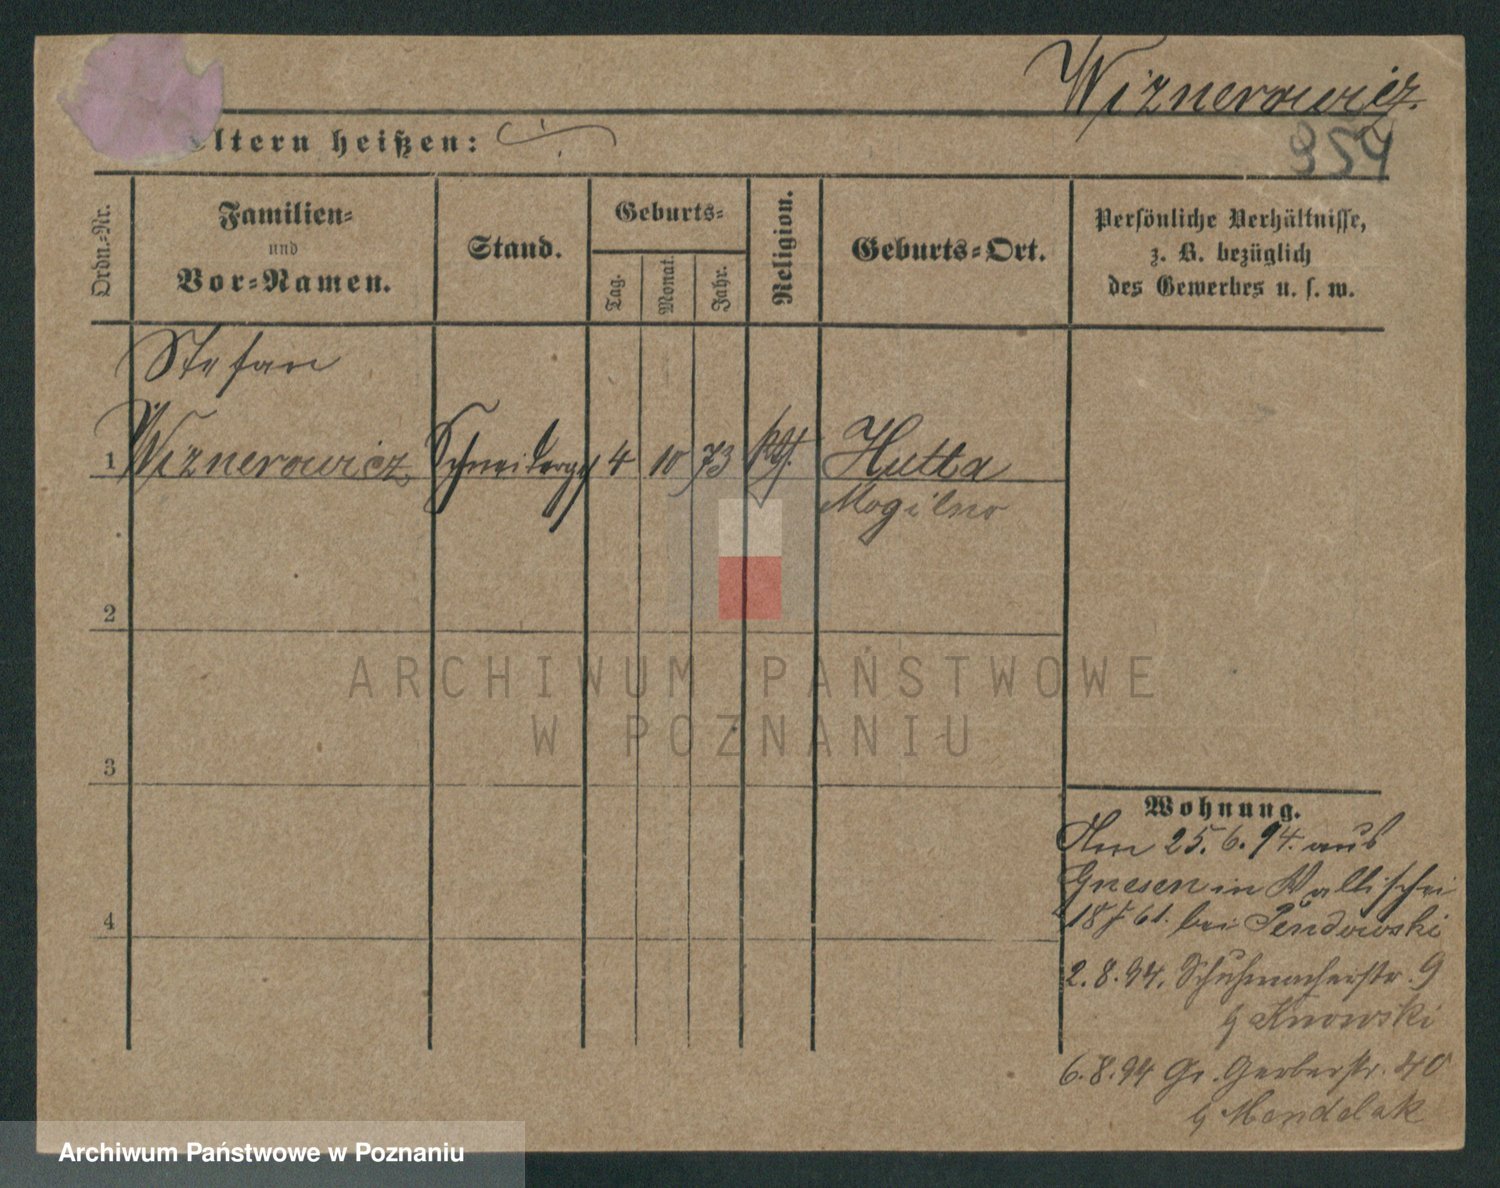 Wiznerowicz.
Eltern heißen:
954
Ordn.-Nr.
Familien-
und
Vor-Namen.
Stand.
Geburts-
Tag.
Monat.
Jahr.
Religion.
Geburts-Ort.
Persönliche Verhältnisse,
z. B. bezüglich
des Gewerbes u. s. w.
Stefan
1 Wiznerowicz Schneiderges 4 10 73 kth. Hutta
Mogilno
2
3
4
Wohnung.
Am 25.6.94. aus
Gnesen in Wallischei
bei Pendowski
2.8.94. Schuhmacherstr. 9
6.8.94 Gr. Gerberstr. 40
b Mendelak
ARCHIWUM PAŃSTWOWE
W POZNANIU
Archiwum Państwowe w Poznaniu